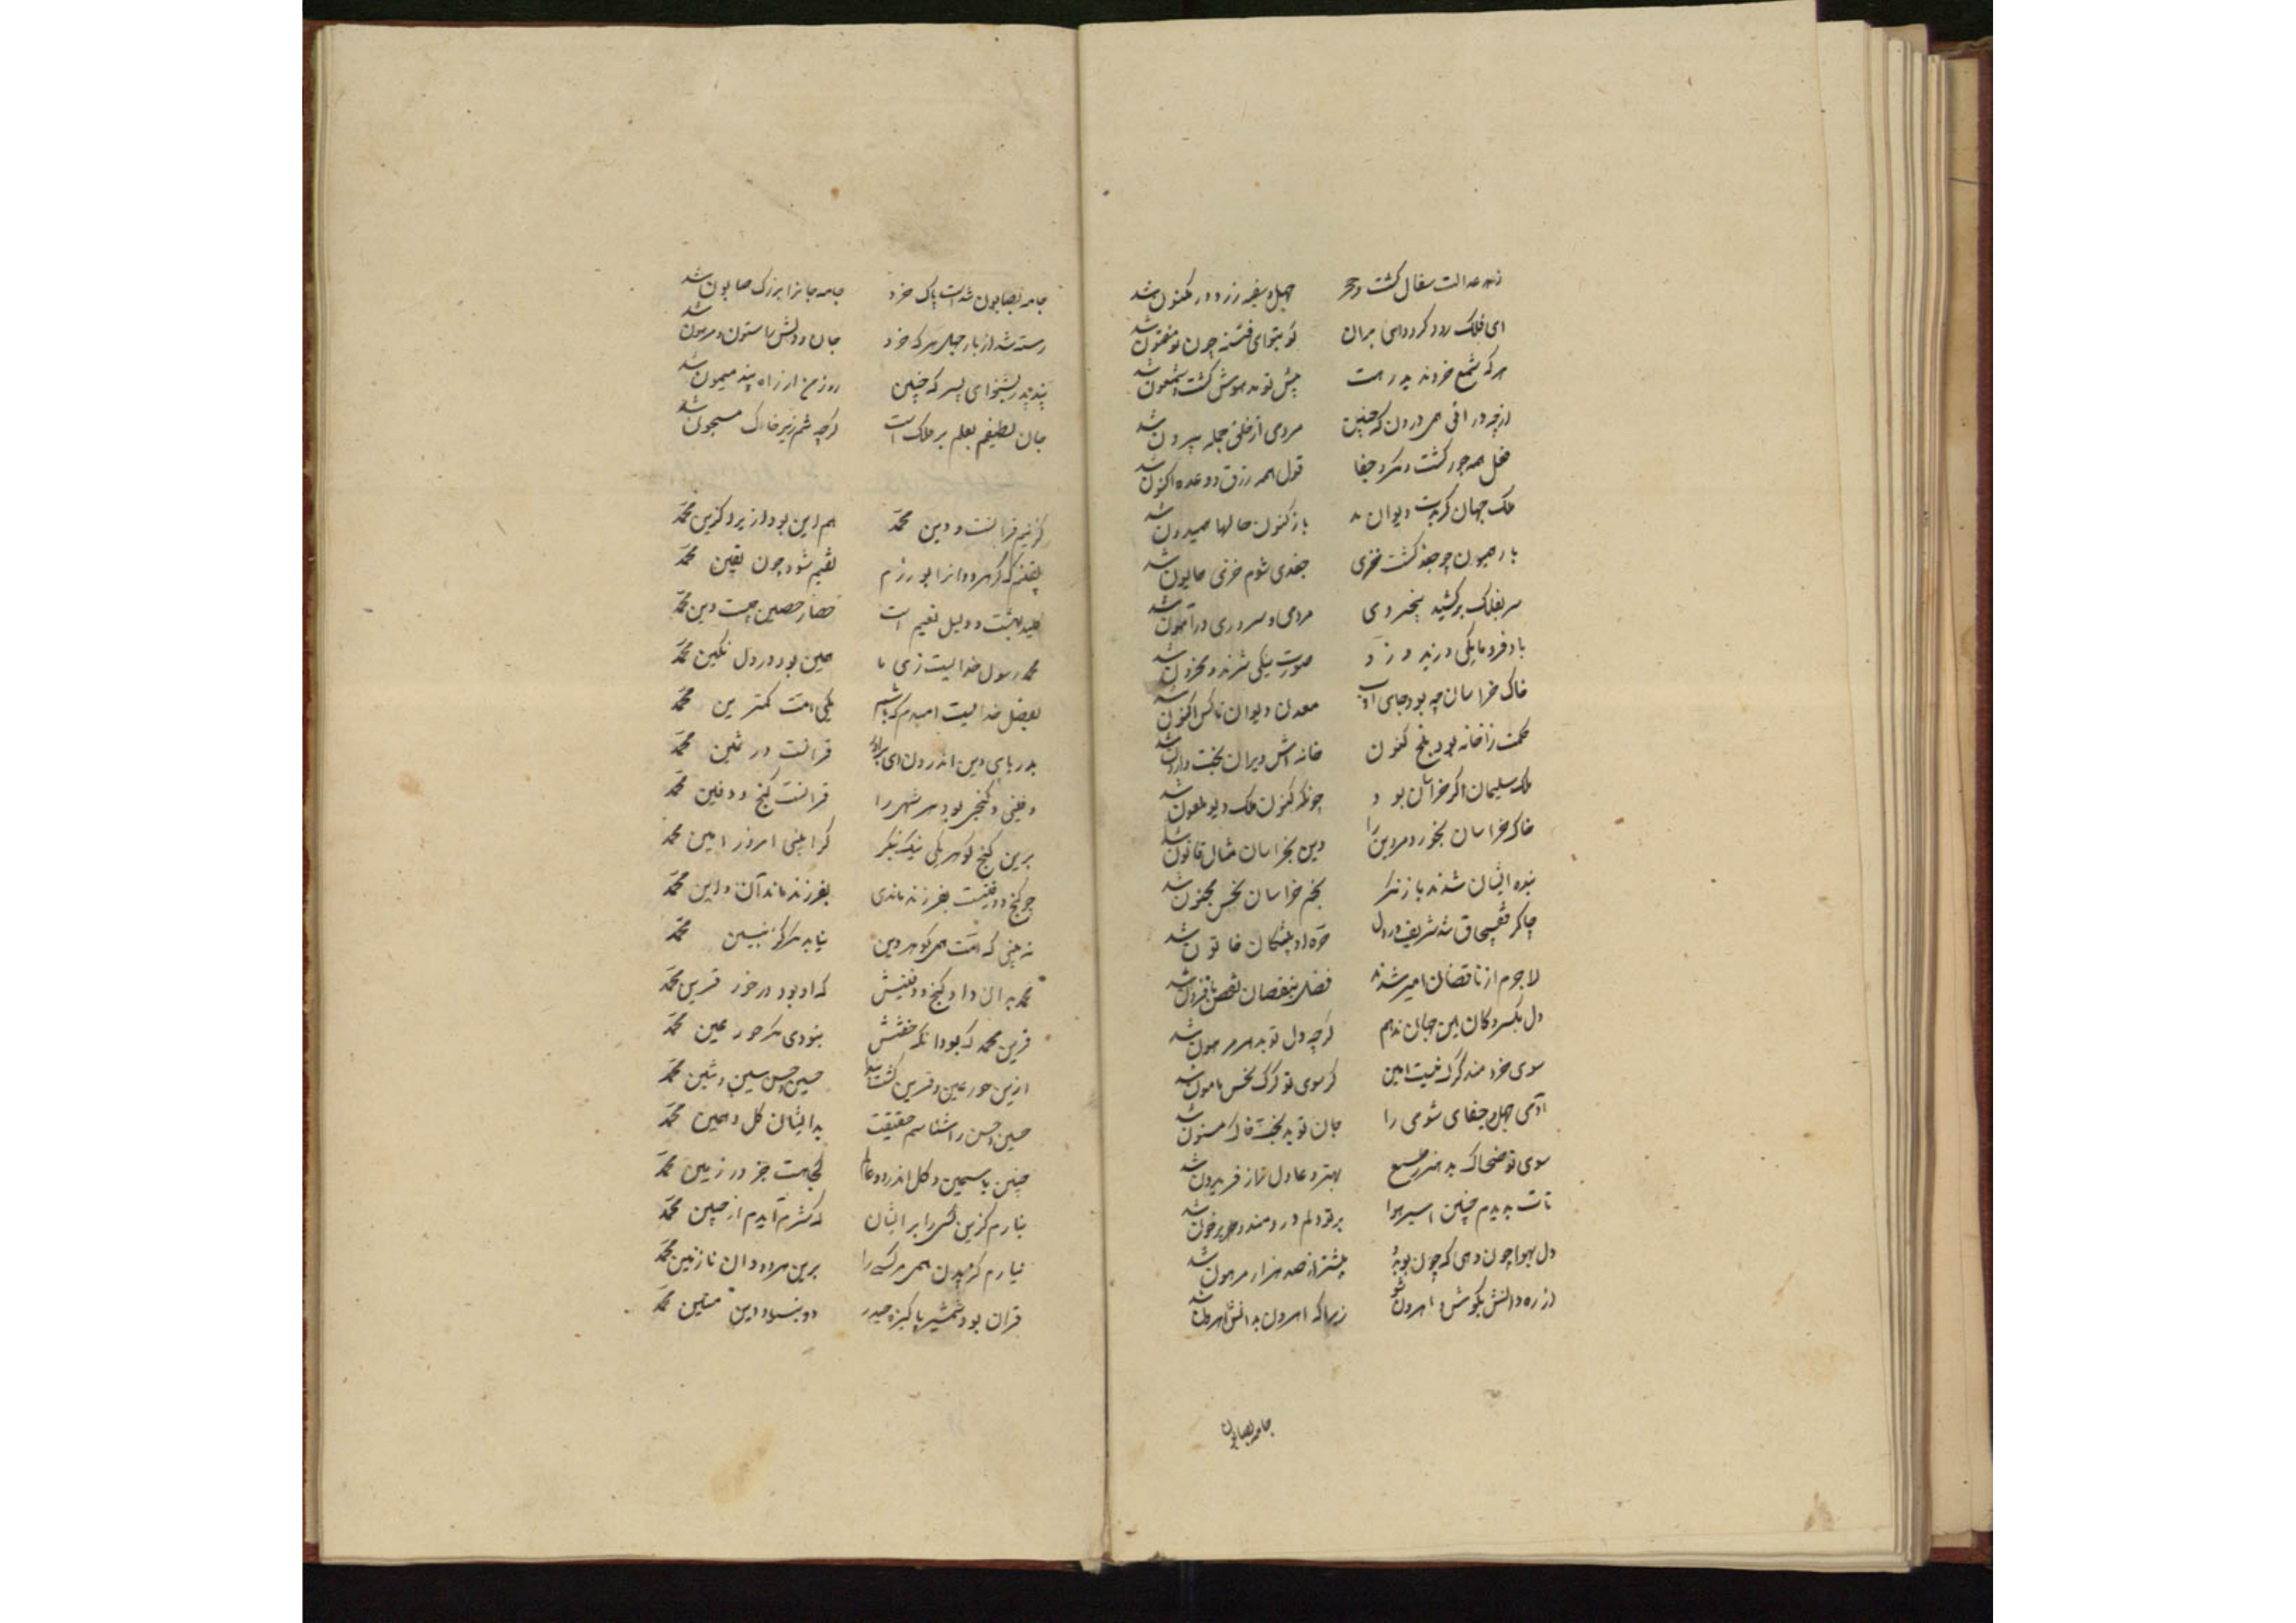 زهد و عدالت سفال گشت و حجر جهل و سفه زر و در مکنون شد
ای فلک زود گرد وای بران کو بتو ای فتنه چون تو مفتون شد
هرکه شمع خرد ندید رهت پیش تو مدهوش گشت و شمعون شد
از چه در افی همی درون که چنین مردمی از خلق جمله بیرون شد
فعل همه جور گشت و مکر و جفا قول همه زرق و وعده اکنون شد
ملک جهان گر بدست دیوان بد باز کنون حالها همیدون شد
باز همیون چو جغد گشت خری جغدی شوم خزی همایون شد
سر بفلک بر کشید بیخردی مردمی و سروری در آهون شد
باد فرومایکی وزید و زو صورت نیکی نژند و محزون شد
خاک خراسان چه بود جای ادب معدن دیوان ناکس اکنون شد
حکمت را خانه بود بلخ کنون خانه اش ویران بخت وارون شد
ملک سلیمان اگر خراسان بود چونکه کنون ملک دیو ملعون شد
خاک خراسان بخورد مر دین را دین بخراسان مثال قانون شد
بنده ایشان شدند باز نکر نجم خراسان نحس مجنون شد
چاکر قفچاق شد شریف و ز دل حره او پیشکان خاتون شد
لاجرم ار ناقصان امیر شدند فضل بنقصان نقص بافزون شد
دل بکسر وکان این جهان ندهم گرچه دل تو بدهر مرهون شد
سوی خردمند گرک نیست امین گر سوی تو گرک نحس مامون شد
آدمی جهل و جفای شومی را جان تو بدبخت خاک مسنون شد
سوی تو ضحاک بد هنر ز طمع بهتر و عادل تر از فریدون شد
تات بدیدم چنین اسیر هوا بر تو دلم دردمند و پر خون شد
دل بهوا چون دهی که چون تو بدو بیشتر از صد هزار مرهون شد
از ره دانش بکوش و اهرون شو زیرا که اهرون بدانش اهرون شد
جامه بصابون
جامه بصابون شدست پاک خرد جامه جانرا بزرگ صابون شد
رسته شد از نار جهل هر که خرد جان و دلش را ستون و پرهون شد
پند پدر بشنو ای پسر که چنین روز من از راه پند میمون شد
جان لطیفم بعلم بر فلک است گرچه تنم زیر خاک مسجون شد
گزینم قرانست و دین محمد هم این بود ازیرا گزین محمد
یقینم که گر هر دوانرا بورزم یقینم شود چون یقین محمد
کلید بهشت و دلیل نعیم است حصار حصین چیست دین محمد
محمد رسول خدایست زی ما همین بود در دل نگین محمد
بفضل خدایست امیدم که باشم یکی امت کمترین محمد
بدریای دین اندرون ای برادر قرانست در ثمین محمد
دفینی و گنجی بود هر شهی را قرانست گنج و دفین محمد
برین گنج و گوهر یکی نیک بنگر کرا بینی امروز امین محمد
چو گنج و دفینت بفرزند ماندی بفرزند ماند آن و این محمد
نه بینی که امت همی گوهر دین نیابد مگر کز بنین محمد
محمد بدان داد گنج و دفینش که او بود در خور قرین محمد
قرین محمد که بود آنکه جفتش نبودی مگر حور عین محمد
ازین حور عین و قرین گشت پیدا حسین و حسن سین و شین محمد
حسین و حسن را شناسم حقیقت بدایشان گل و یاسمین محمد
چنین یاسمین و گل اندر دو عالم کجا هست جز در زمین محمد
نیارم گزیدن کسی را بر ایشان که شرم آیدم از جبین محمد
نیارم گزیدن همی هر کسی را برین هر دوان نازنین محمد
قران بود و شمشیر پاکیزه حیدر دو بنیاد دین متین محمد